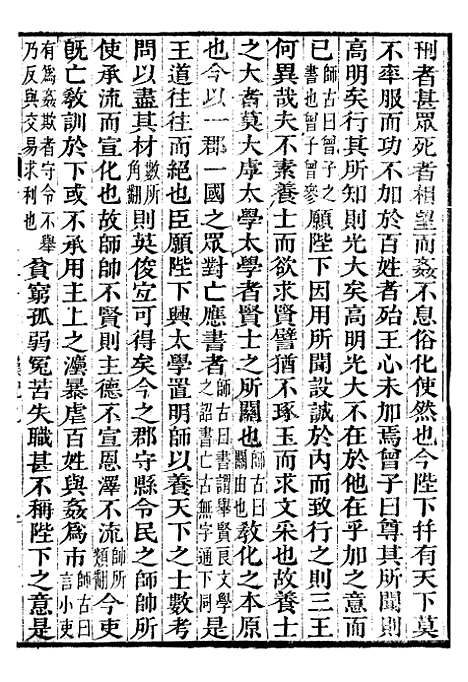 刑者甚眾死者相望而姦不息俗化使然也今陛下幷有天下莫
不率服而功不加於百姓者殆王心未加焉曾子曰尊其所聞則
高明矣行其所知則光大矣高明光大不在於他在乎加之意而
已師古曰曾子之書也曾子曾參願陛下因用所聞設誠於內而致行之則三王
何異哉夫不素養士而欲求賢譬猶不琢玉而求文采也故養士
之大者莫大虖太學太學者賢士之所關也師古曰關由也教化之本原
也今以一郡一國之眾對亡應書者師古曰書謂舉賢良文學之詔書亡古無字通下同是
王道往往而絕也臣願陛下興太學置明師以養天下之士數考
問以盡其材數所角翻則英俊宜可得矣今之郡守縣令民之師帥所
使承流而宣化也故師帥不賢則主德不宣恩澤不流師所類翻今吏
旣亡教訓於下或不承用主上之灋暴虐百姓與姦爲市師古曰言小吏
有爲姦欺者守令不舉乃反與交易求利也貧窮孤弱冤苦失職甚不稱陛下之意是